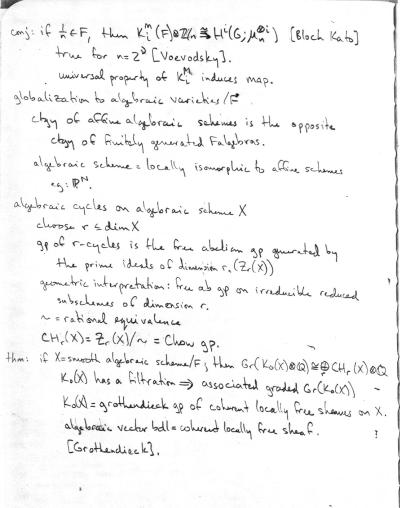 conj: if 1/n ∈ F, then K_i^M(F)⊗Z/n ≅ H^i(G; μ_n^{⊗i}) [Bloch Kato]
true for n=2^ν [Voevodsky].
universal property of K_i^M induces map.
globalization to algebraic varieties/F
ctgy of affine algebraic schemes is the opposite
ctgy of finitely generated F algebras.
algebraic scheme = locally isomorphic to affine schemes
eg: P^N.
algebraic cycles on algebraic scheme X
choose r ≤ dim X
gp of r-cycles is the free abelian gp generated by
the prime ideals of dimension r. (Z_r(X))
geometric interpretation: free ab gp on irreducible reduced
subschemes of dimension r.
~ = rational equivalence
CH_r(X) = Z_r(X)/~ = Chow gp.
thm: if X=smooth algebraic scheme/F, then Gr(K_0(X)⊗Q) ≅ ⊕CH_r(X)⊗Q
K_0(X) has a filtration ⟹ associated graded Gr(K_0(X))
K_0(X) = grothendieck gp of coherent locally free sheaves on X.
algebraic vector bdl = coherent locally free sheaf.
[Grothendieck].